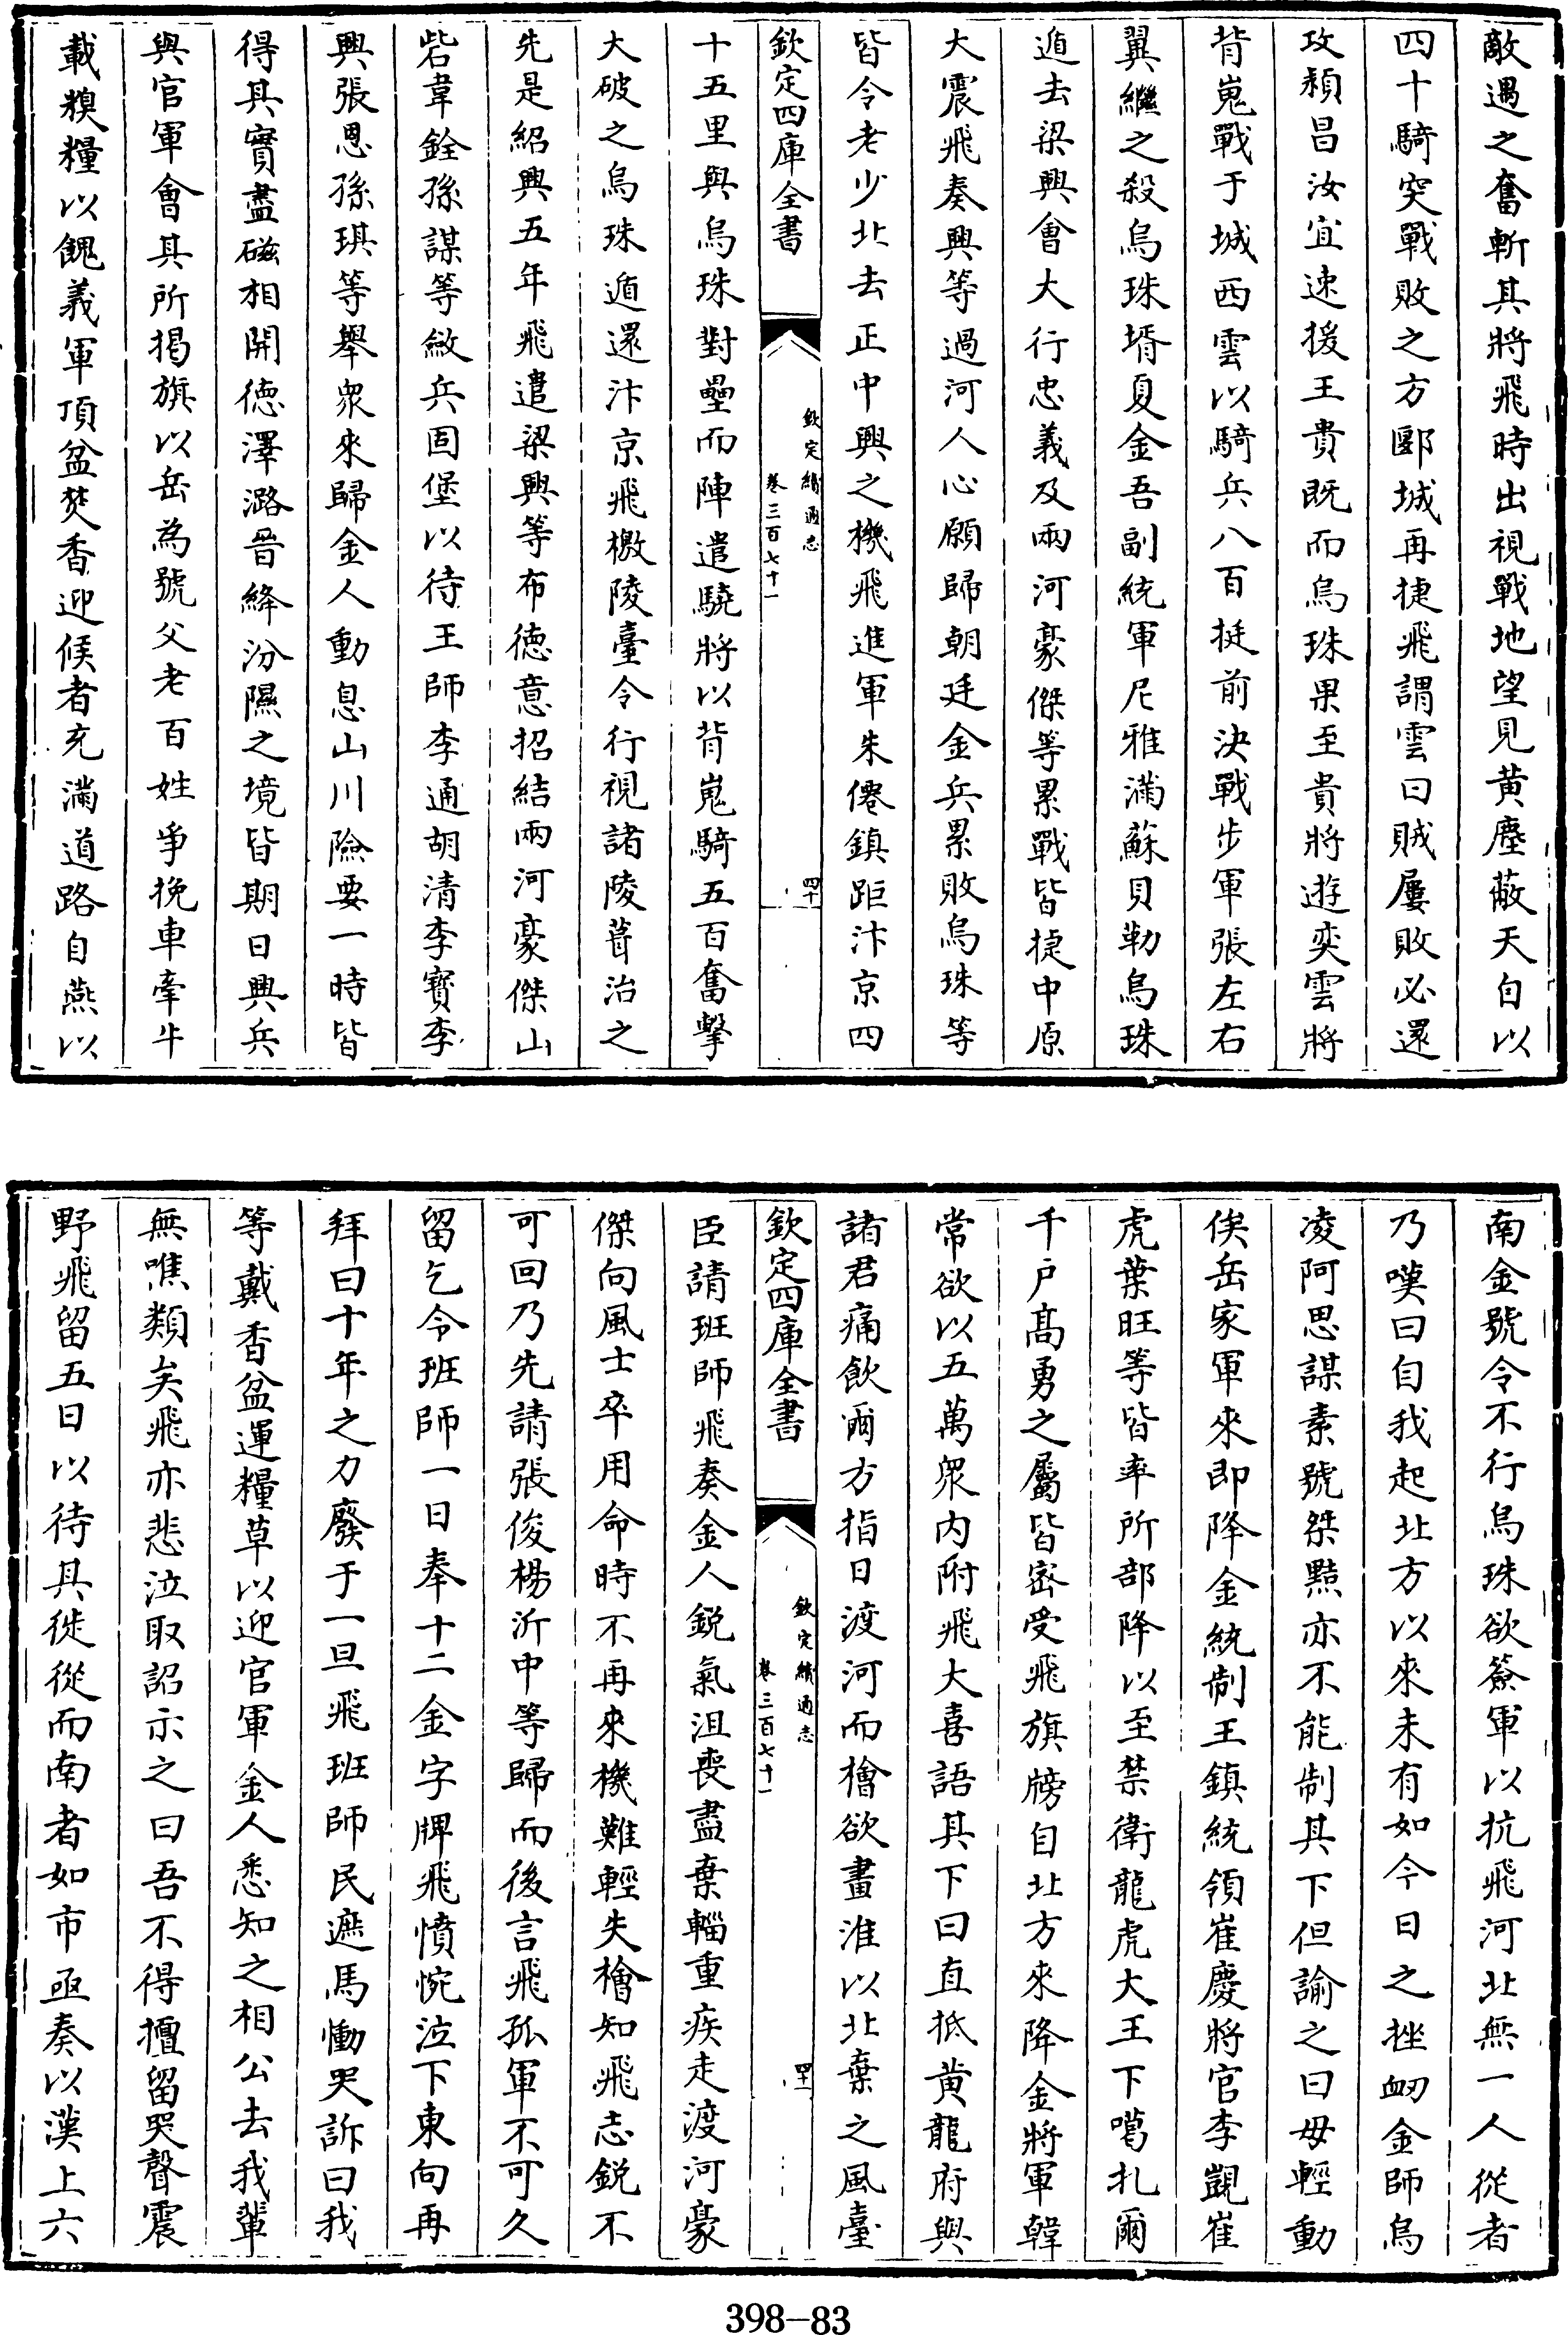 敵遇之奮斬其將飛時出視戰地望見黄塵蔽天自以
四十騎突戰敗之方郾城再捷飛謂雲曰賊屢敗必還
攻頴昌汝宜速援王貴既而烏珠果至貴將遊奕雲將
背嵬戰于城西雲以騎兵八百挺前決戰步軍張左右
翼繼之殺烏珠壻夏金吾副統軍尼雅滿蘇貝勒烏珠
遁去梁興會大行忠義及兩河豪傑等累戰皆捷中原
大震飛奏興等過河人心願歸朝廷金兵累敗烏珠等
皆令老少北去正中興之機飛進軍朱僊鎮距汴京四
欽定四庫全書
欽定續通志
卷三百七十一
四十
十五里與烏珠對壘而陣遣驍將以背嵬騎五百奮擊
大破之烏珠遁還汴京飛檄陵臺令行視諸陵葺治之
先是紹興五年飛遣梁興等布德意招結兩河豪傑山
砦韋銓孫謀等斂兵固堡以待王師李通胡清李寶李
興張恩孫琪等舉衆來歸金人動息山川險要一時皆
得其實盡磁相開德澤潞晉絳汾隰之境皆期日興兵
與官軍會其所揭旗以岳為號父老百姓爭挽車牽牛
載糗糧以餽義軍頂盆焚香迎候者充滿道路自燕以
南金號令不行烏珠欲簽軍以抗飛河北無一人從者
乃嘆曰自我起北方以來未有如今日之挫衂金師烏
凌阿思謀素號桀黠亦不能制其下但諭之曰毋輕動
俟岳家軍來即降金統制王鎮統領崔慶將官李覬崔
虎葉旺等皆率所部降以至禁衛龍虎大王下噶扎爾
千戸髙勇之屬皆密受飛旗牓自北方來降金將軍韓
常欲以五萬衆内附飛大喜語其下曰直抵黄龍府與
諸君痛飲爾方指日渡河而檜欲畫淮以北棄之風臺
欽定四庫全書
欽定續通志
卷三百七十一
四十一
臣請班師飛奏金人銳氣沮喪盡棄輜重疾走渡河豪
傑向風士卒用命時不再來機難輕失檜知飛志銳不
可回乃先請張俊楊沂中等歸而後言飛孤軍不可久
留乞令班師一日奉十二金字牌飛憤惋泣下東向再
拜曰十年之力廢于一旦飛班師民遮馬慟哭訴曰我
等戴香盆運糧草以迎官軍金人悉知之相公去我輩
無噍類矣飛亦悲泣取詔示之曰吾不得擅留哭聲震
野飛留五日以待其徙從而南者如市亟奏以漢上六
398-83